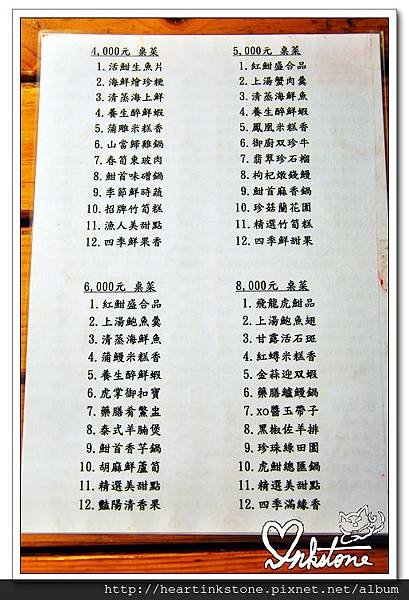 4,000元 桌菜
1.活魽生魚片
2.海鮮燴珍粳
3.清蒸海上鮮
4.養生醉鮮蝦
5.蒲雕米糕香
6.山當歸雞鍋
7.春筍東玻肉
8.魽首味磳鍋
9.季節鮮時蔬
10.招牌竹筍糕
11.漁人美甜點
12.四季鮮果香
5,000元 桌菜
1.紅魽盛合品
2.上湯蟹肉羹
3.清蒸海鮮魚
4.養生醉鮮蝦
5.鳳凰米糕香
6.御廚双珍牛
7.翡翠珍石榴
8.枸杞燉錢鰻
9.魽首麻香鍋
10.珍菇蘭花園
11.精選竹筍糕
12.四季鮮甜果
6,000元 桌菜
1.紅魽盛合品
2.上湯鮑魚羹
3.清蒸海鮮魚
4.蒲鰻米糕香
5.養生醉鮮蝦
6.虎掌御扣寶
7.藥膳肴鱉虫
8.泰式羊腩煲
9.魽首香芋鍋
10.胡麻鮮蘆筍
11.精選美甜點
12.豔陽清香果
8,000元 桌菜
1.飛龍虎魽品
2.上湯鮑魚翅
3.甘露活石斑
4.紅蟳米糕香
5.金蒜迎双蝦
6.藥膳鱸鰻鍋
7.xo醬玉帶子
8.黑椒佐羊排
9.珍珠綠田園
10.虎魽總匯鍋
11.精選美甜點
12.四季滿緣香
Inkstone
http://heartinkstone.pixnet.net/album